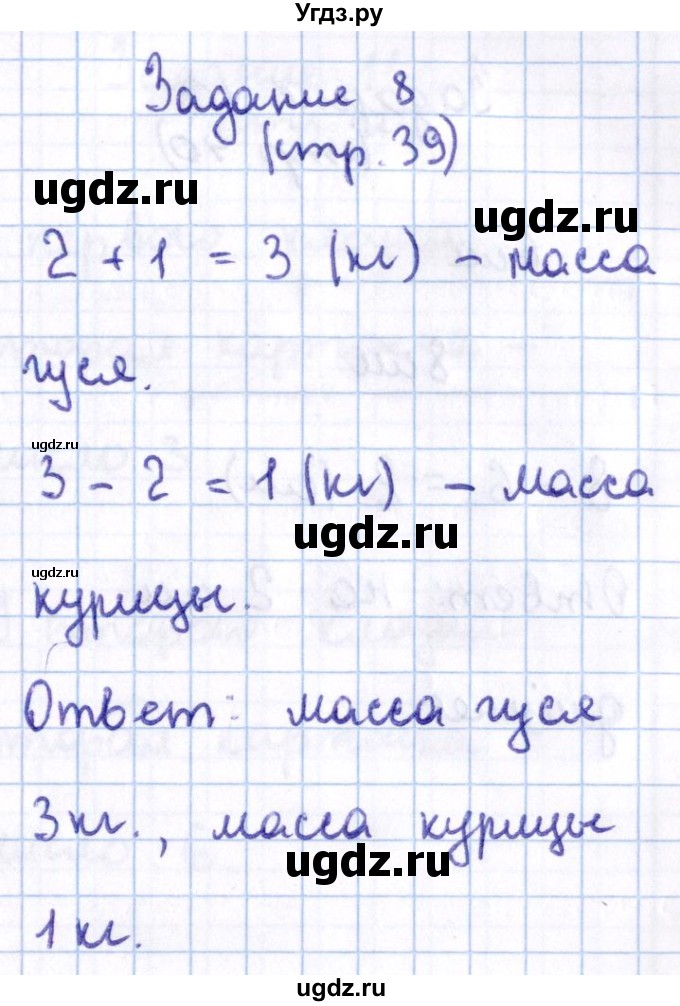 Угдз.ру
Задание 8
(стр. 39)
ugdz.ru
ugdz.ru
2 + 1 = 3 (кг) – масса
гуся.
ugdz.ru
3 – 2 = 1 (кг) – масса
ugdz.ru
ugdz.ru
курицы.
Ответ: масса гуся
ugdz.ru
3 кг., масса курицы
ugdz.ru
1 кг.
ugdz.ru